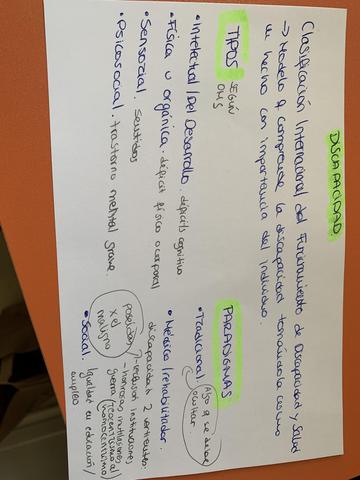 DISCAPACIDAD
Clasificación Internacional del Funcionamiento de Discapacidad y Salud
→ Modelo q comprende la discapacidad tomándola como
un hecho con importancia del individuo.
TIPOS SEGÚN
OMS
• Intelectual/Del Desarrollo. déficits cognitivo
• Física u orgánica. déficit físico o corporal
• Sensorial. Sentidos
• Psicosocial. trastorno mental grave.
PARADIGMAS
• Tradicional Algo q se debe
ocultar.
• Médico/rehabilitador.
discapacidad 2 vertientes:
poseídos
x el
maligno
- reclusión instituciones
- honrosas mutilaciones
guerra
• Social. Igualdad en educación/
empleo